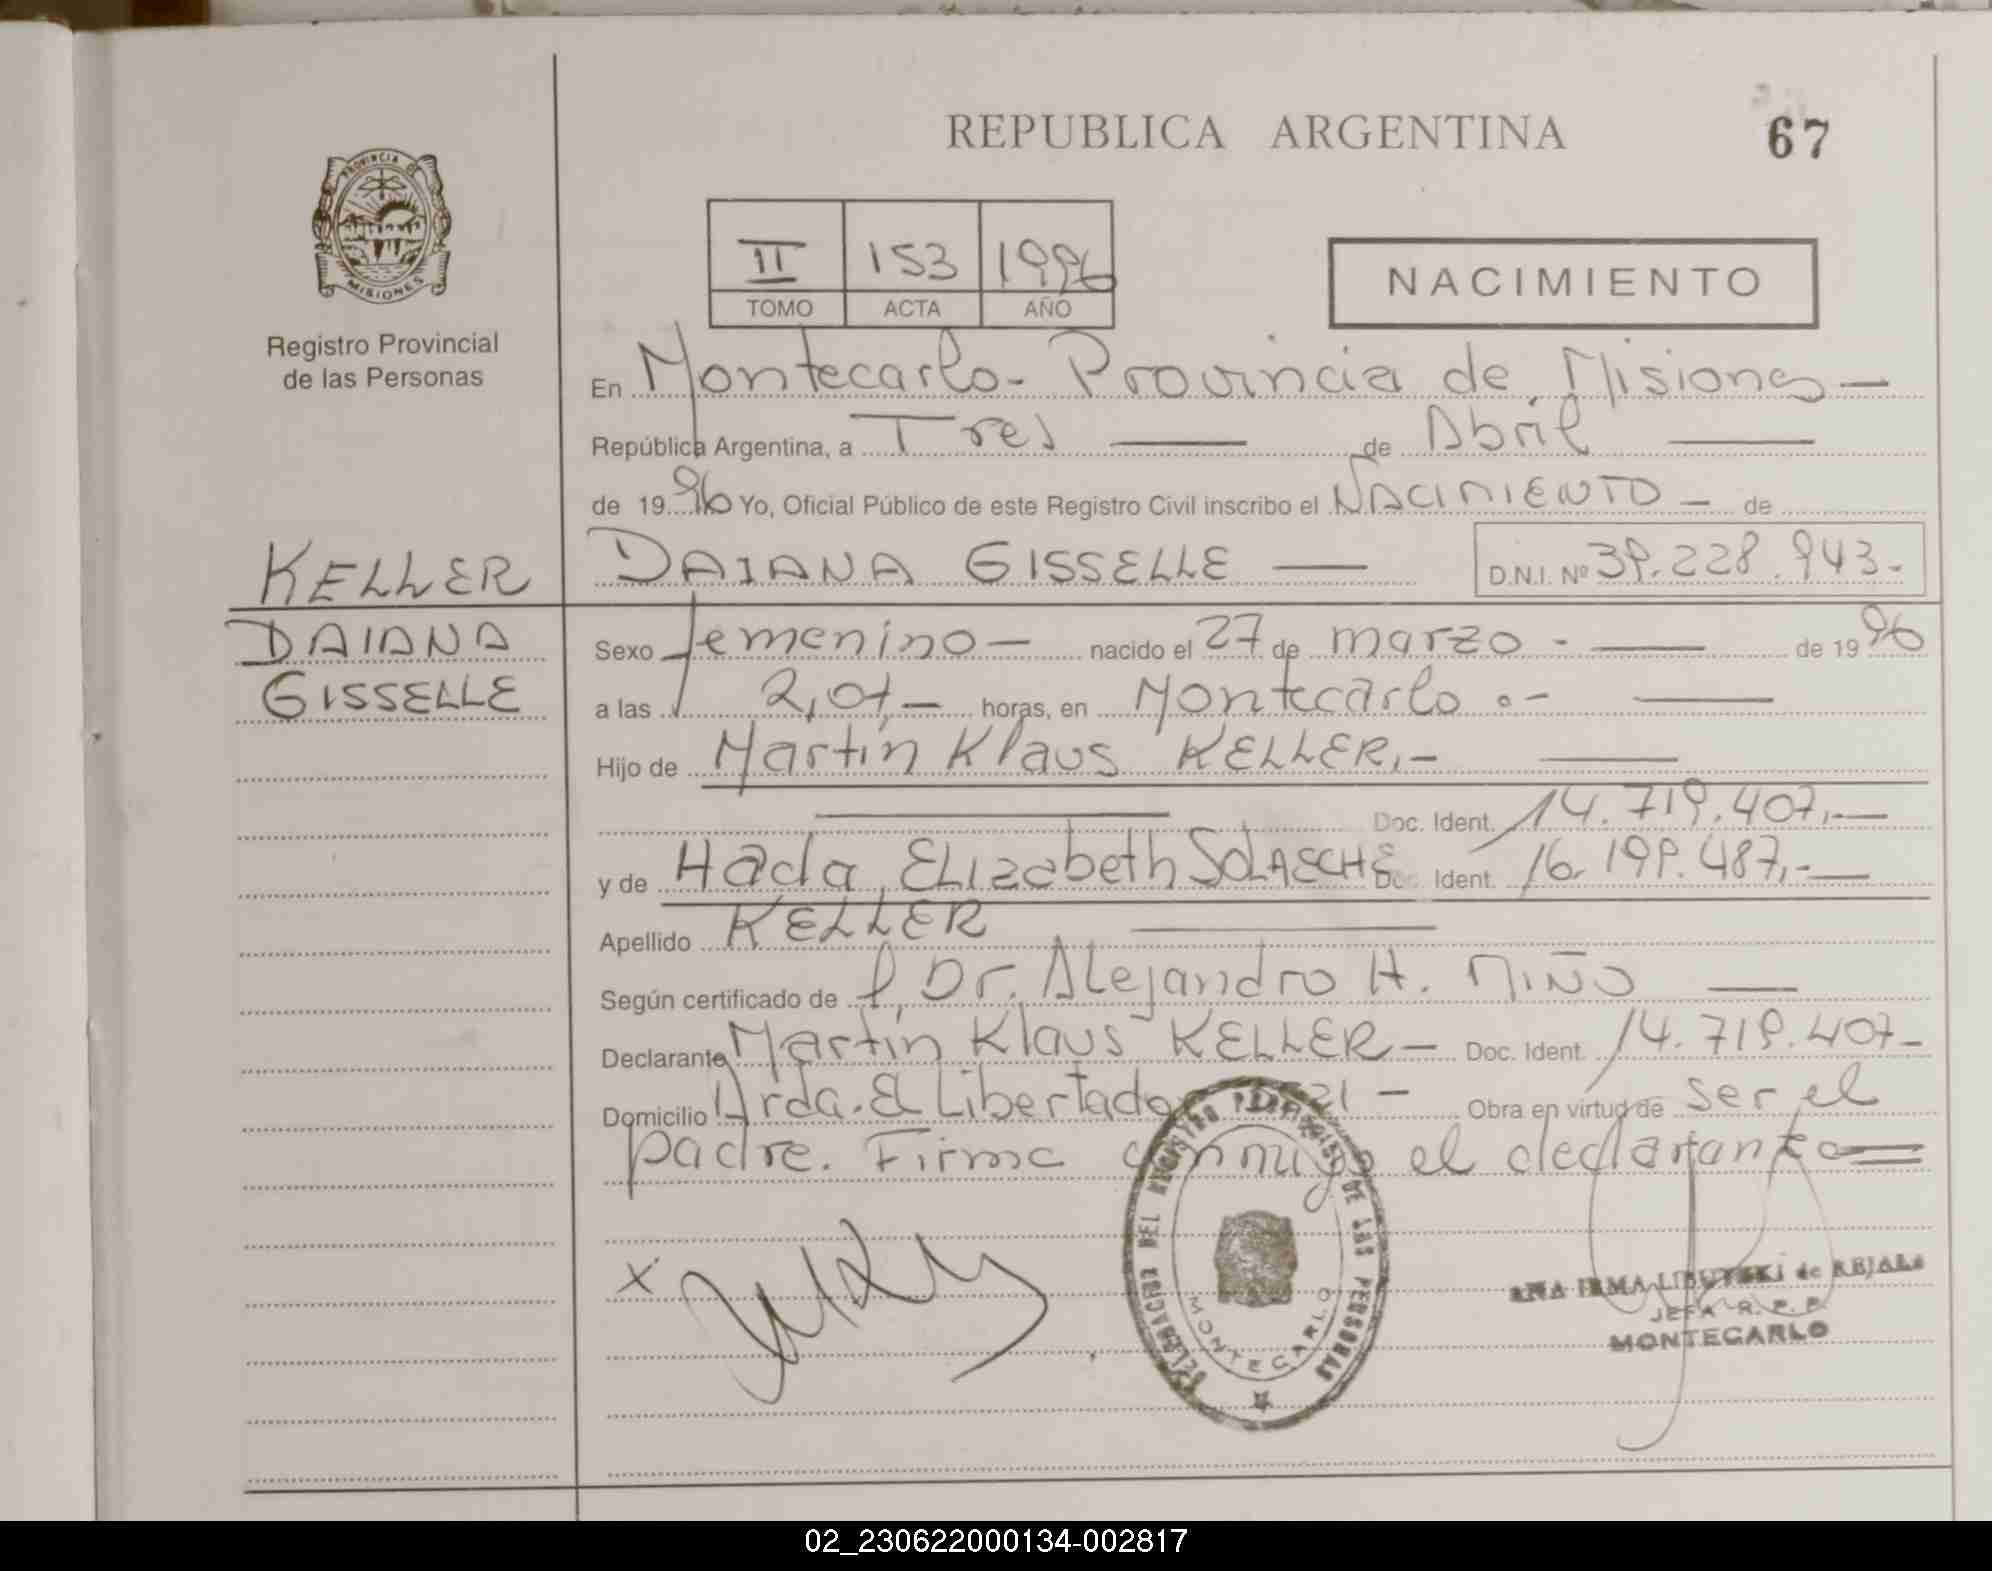 REPUBLICA ARGENTINA
67
PROVINCIA DE
MISIONES
Registro Provincial
de las Personas
II 153 1996
TOMO ACTA AÑO
NACIMIENTO
En Montecarlo - Provincia de Misiones —
República Argentina, a Tres — de Abril —
de 1996 Yo, Oficial Público de este Registro Civil inscribo el NACIMIENTO - de
KELLER
DAIANA GISSELLE — D.N.I. Nº 39.228.943.-
DAIANA
GISSELLE
Sexo femenino — nacido el 27 de marzo - — de 1996
a las 2,01,- horas, en Montecarlo .- —
Hijo de Martín Klaus KELLER,- —
— Doc. Ident. 14.719.407,-
y de Hada Elizabeth Doc. Ident. 16.199.487,-
Apellido KELLER —
Según certificado de Dr. Alejandro H. MIÑO —
Declarante Martín Klaus KELLER - Doc. Ident. 14.719.407-
Domicilio Avda. El Libertador 21 - Obra en virtud de ser el
padre. Firma conmigo el declarante =
X
DELEGACION DEL REGISTRO PROVINCIAL DE LAS PERSONAS
MONTECARLO
ANA IRMA de REJALA
JEFA R. P. P.
MONTECARLO
02_230622000134-002817